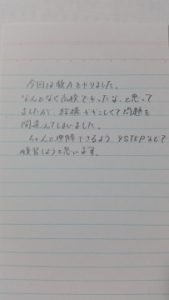 今回は数Aをやりました。
なんとなく高校でやったな、と思って
ましたが、結構ややこしくて問題を
間違えてしまいました。
ちゃんと理解できるよう、4STEPなどで
復習しようと思います。